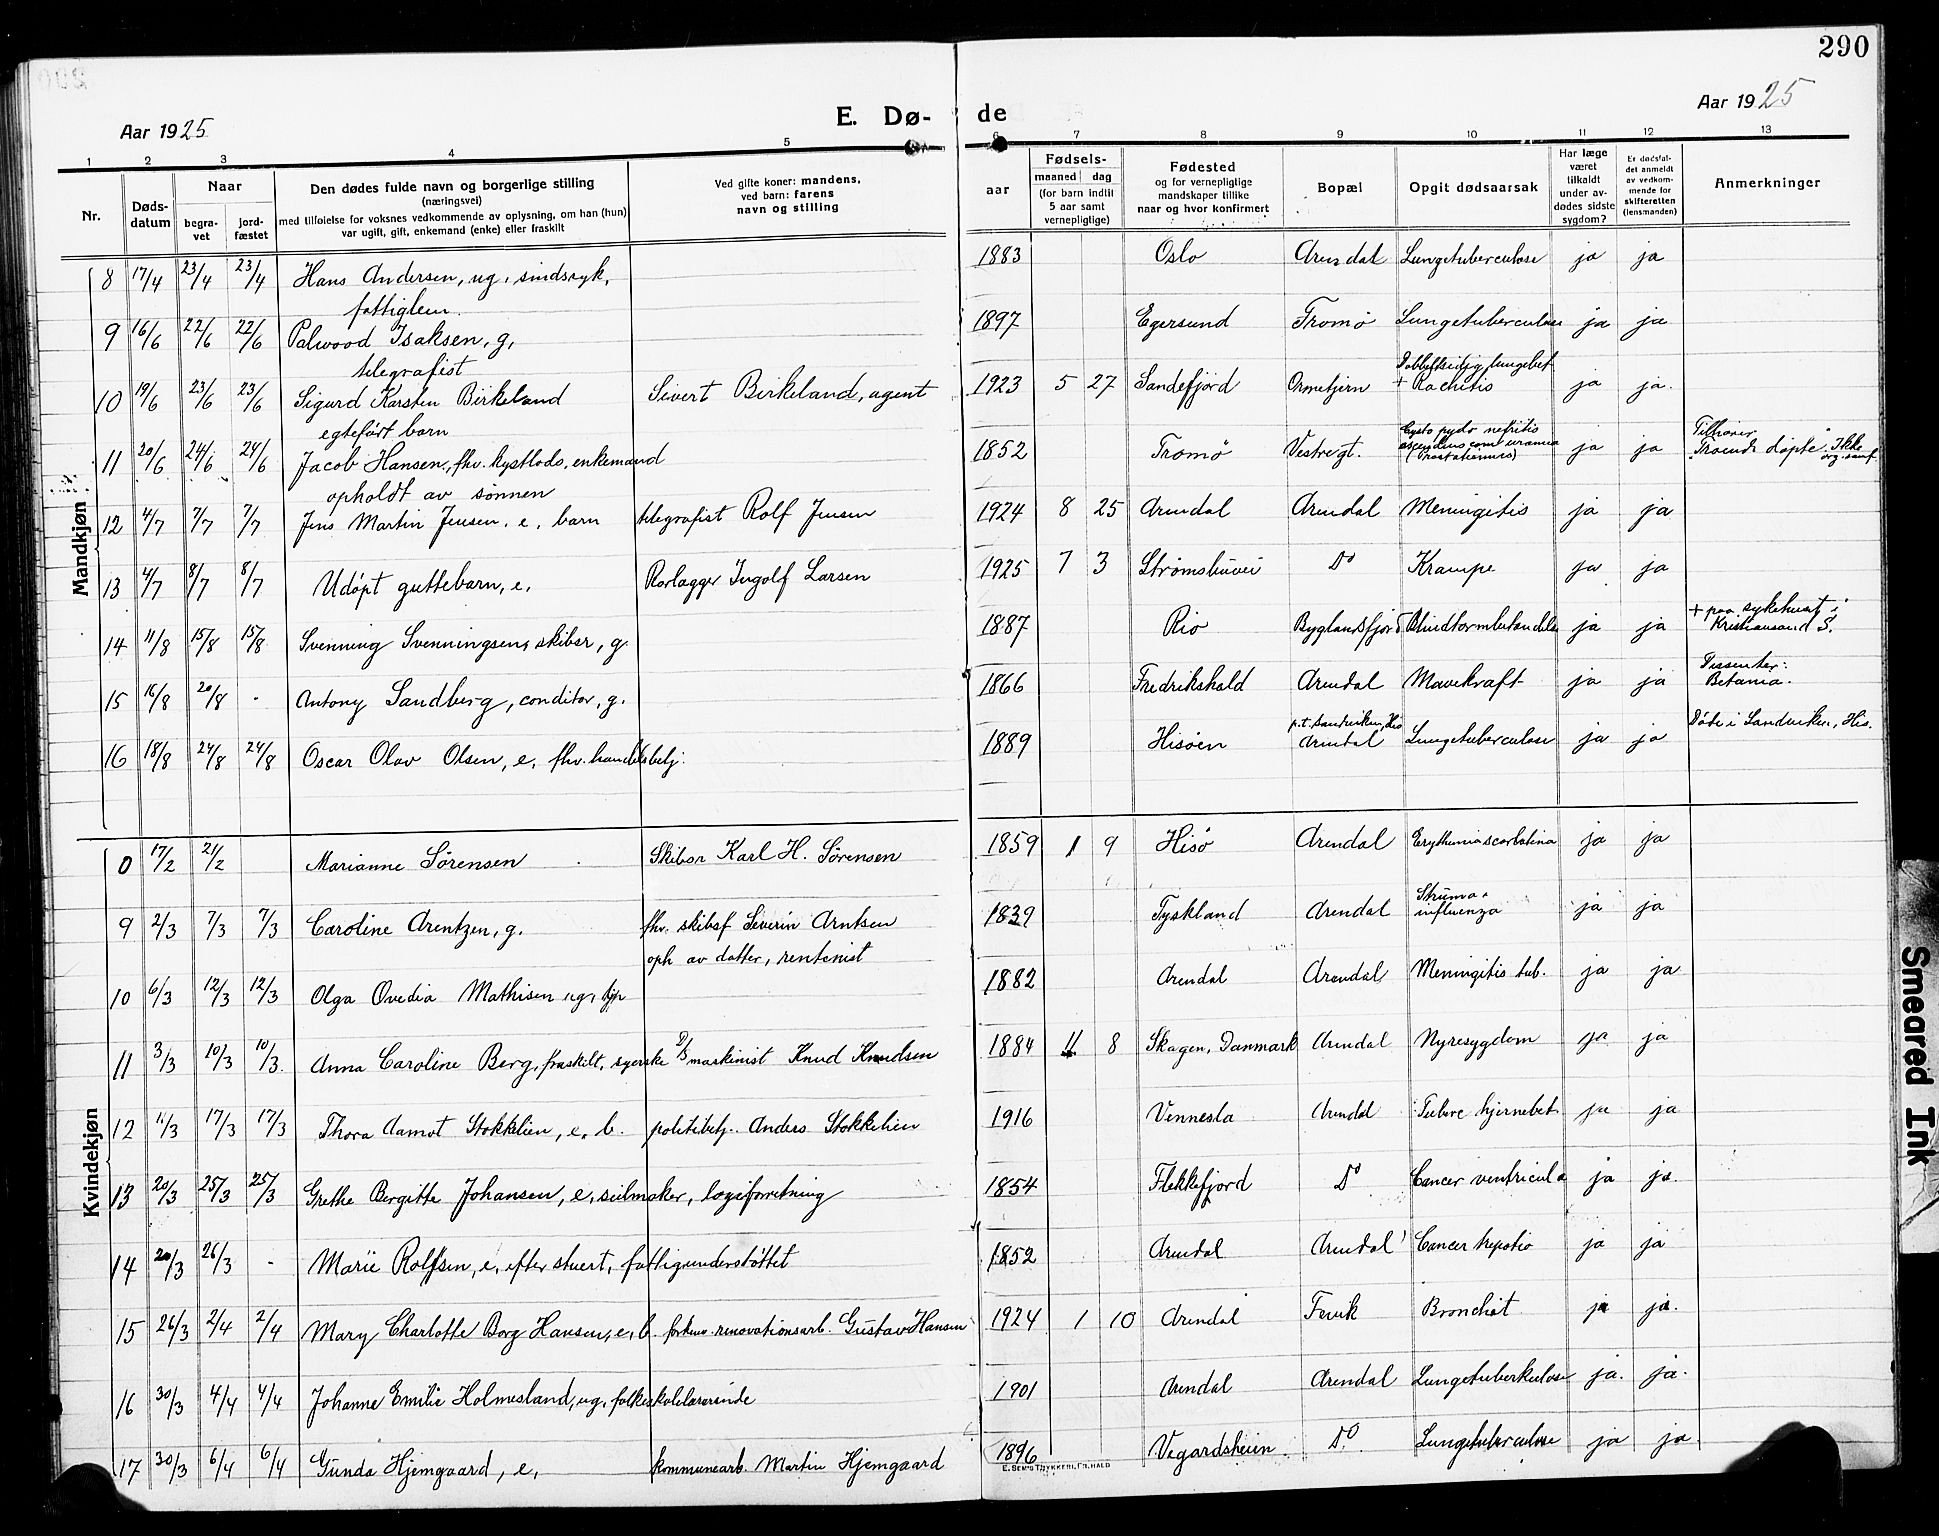 290
Aar 1925
E. Dø-
de
Aar 1925
1 2 3 4 5 6 7 8 9 10 11 12 13
Nr.
Døds-
datum
Naar
begra-
vet
jord-
fæstet
Den dødes fulde navn og borgerlige stilling
(næringsvei)
med tilføielse for voksnes vedkommende av oplysning, om han (hun)
var ugift, gift, enkemand (enke) eller fraskilt
Ved gifte koner: mandens,
ved barn: farens
navn og stilling
aar
Fødsels-
maaned dag
(for barn indtil
5 aar samt
vernepligtige)
Fødested
og for vernepligtige
mandskaper tillike
naar og hvor konfirmert
Bopæl
Opgit dødsaarsak
Har læge
været
tilkaldt
under av-
dødes sidste
sygdom?
Er dødsfal-
det anmeldt
av vedkom-
mende for
skifteretten
(lensmanden)
Anmerkninger
Mandkjøn
8 17/4 23/4 23/4 Hans Andersen, ug, sindssyk, 1883 Oslo Arendal Lungetuberculose ja ja
fattiglem.
9 16/6 22/6 22/6 Palwood Isaksen, g, 1897 Egersund Tromø Lungetuberculose ja ja
telegrafist
Dobbeltsidig lungebet.
10 19/6 23/6 23/6 Sigurd Karsten Birkeland Sivert Birkeland, agent 1923 5 27 Sandefjord Ormetjern + Rachitis ja ja.
egteført barn
11 20/6 24/6 24/6 Jacob Hansen, fhv. kystlods, enkemand 1852 Tromø Vestregt. Cysto pyelo nefritis ja ja Tilhører
ascendens cum uræmia Troende døpte. Ikke
org. samf.
opholdt av sønnen
12 4/7 7/7 7/7 Jens Martin Jensen, e, barn telegrafist Rolf Jensen 1924 8 25 Arendal Arendal Meningitis ja ja
13 4/7 8/7 8/7 Udøpt guttebarn, e, Rørlægger Ingolf Larsen 1925 7 3 Strømsbuvei Do Krampe ja ja
14 11/8 15/8 15/8 Svenning Svenningsen, skibsr, g. 1887 Rio Byglandsfjord Blindtarmbetændelse ja ja + paa sykehuset i
Kristiansand S.
15 16/8 20/8 - Antony Sandberg, conditor, g. 1866 Fredrikshald Arendal Mavekræft ja ja Dissenter:
Betania.
16 18/8 24/8 24/8 Oscar Olav Olsen, e, fhv. handelsbetj. 1889 Hisøen p.t. Sandviken, His Lungetuberculose ja ja Døde i Sandviken, His.
Arendal
Kvindekjøn
0 17/2 21/2 Marianne Sørensen Skibsr Karl H. Sørensen 1859 1 9 Hisø Arendal ja ja
9 2/3 7/3 7/3 Caroline Arentzen, g. fhv. skibsf Severin Arntsen 1839 Tyskland Arendal Struma ja ja
influenza
oph av datter, rentenist
10 6/3 12/3 12/3 Olga Ovedia Mathisen ug, 1882 Arendal Arendal Meningitis tub. ja ja
11 3/3 10/3 10/3. Anna Caroline Berg, fraskilt, syerske D/S maskinist Knud Knudsen 1884 11 8 Skagen, Danmark Arendal Nyresygdom ja ja
12 11/3 17/3 17/3 Thora Aamot Stokkelien, e, b. politibetj. Anders Stokkelien 1916 Vennesla Arendal Tuberc hjernebet. ja ja
13 20/3 25/3 25/3 Grethe Bergitte Johansen, e, seilmaker, logiforretning 1854 Flekkefjord Do Cancer ventriculi ja ja.
14 20/3 26/3 - Marie Rolfsen, e, efter stuert, fattigunderstøttet 1852 Arendal Arendal Cancer hepatis ja ja
15 26/3 2/4 2/4 Mary Charlotte Borg Hansen, e, b. forhenv. renovationsarb. Gustav Hansen 1924 1 10 Arendal Fevik Bronchit ja ja.
16 30/3 4/4 4/4 Johanne Emilie Holmesland, ug, folkeskolelærerinde 1901 Arendal Arendal Lungetuberkulose ja. ja.
17 30/3 6/4 6/4 Gunda Hjemgaard, e, kommunearb. Martin Hjemgaard 1896 Vegardsheien Do. Lungetuberculose ja ja
E. SEM'S TRYKKERI, FR.HALD
Smeared Ink